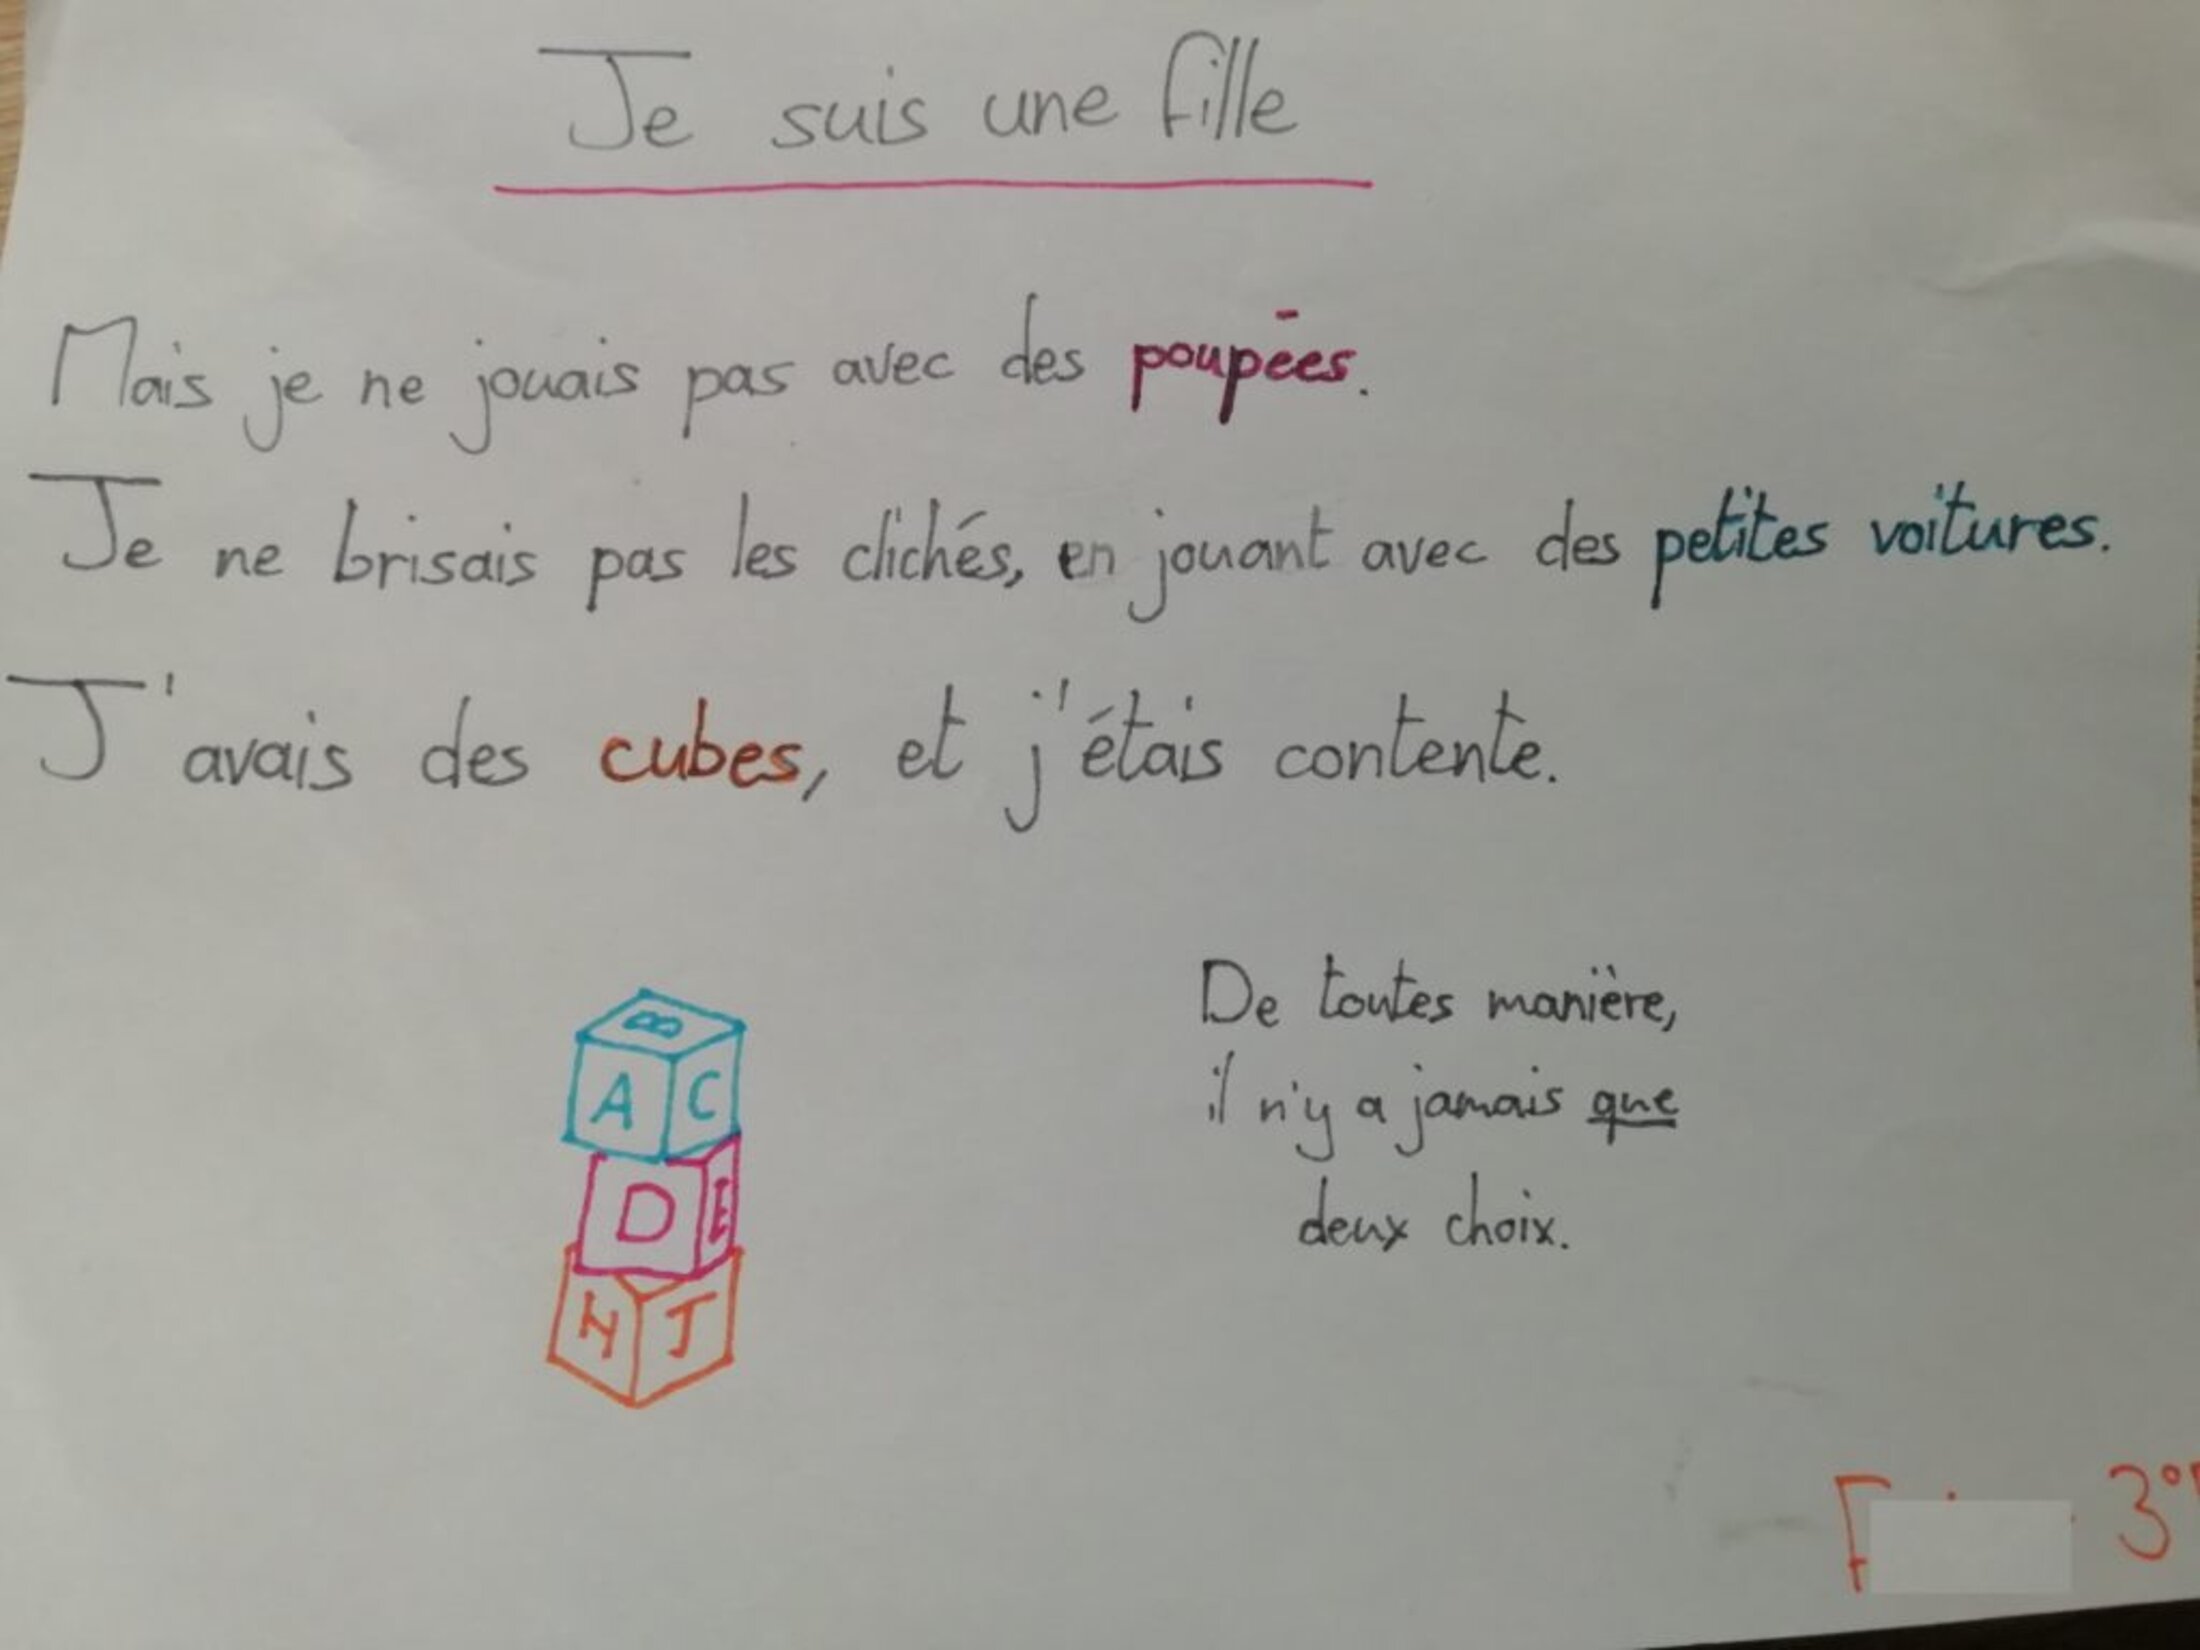 Je suis une fille
Mais je ne jouais pas avec des poupées.
Je ne brisais pas les clichés, en jouant avec des petites voitures.
J'avais des cubes, et j'étais contente.
B
A C
D E
H J
De toutes manière,
il n'y a jamais que
deux choix.